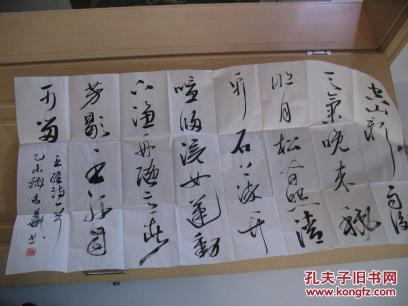 空山新雨後
天氣晚来秋
明月松间照清
泉石上流竹
喧归浣女莲动
下渔舟随意春
芳歇王孙自
可留
王维诗一首
乙未秋
孔夫子旧书网
www.kongfz.com